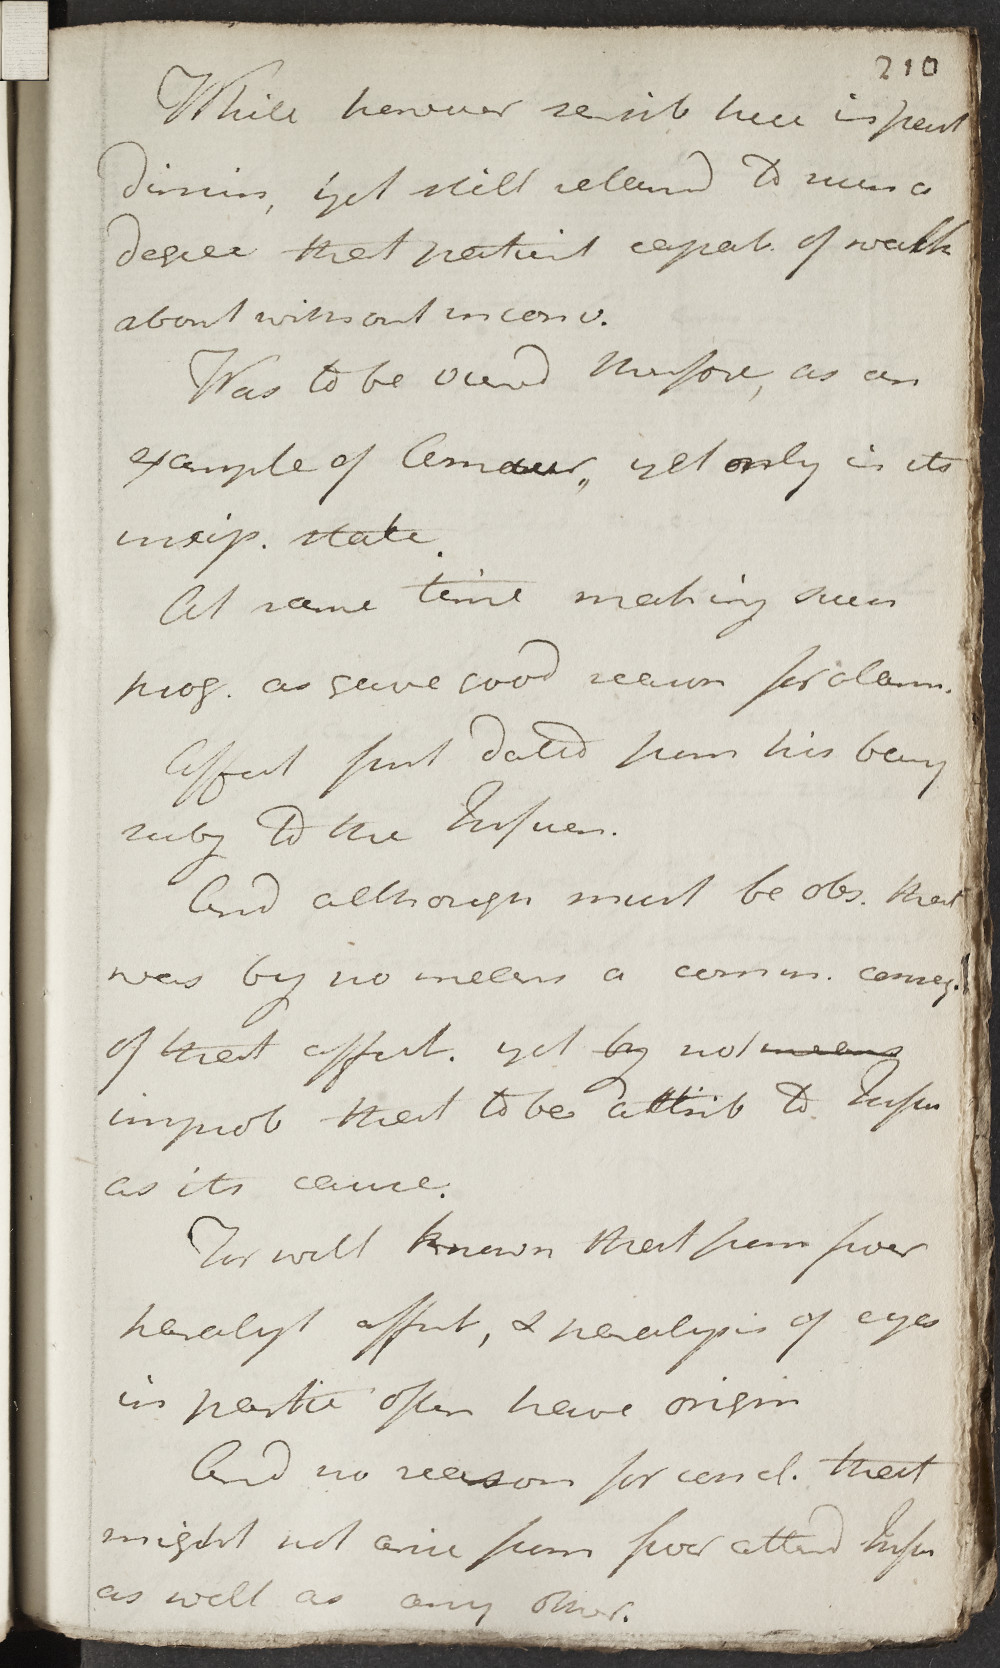 210
While however sensib here in great
dimin, yet still retaind to such a
degree that patient capab. of walk
about without inconv.
Was to be viewd therefore, as an
example of Amaur, yet only in its
incip. state.
At same time making such
prog. as gave good reason for alarm.
Affect first dated from his being
subj to the Influen.
And although must be obs. that
was by no means a comm. conseq.
of that affect. yet by no means
improb that to be attrib to Influ
as its cause.
For well known that from fever
paralyt affect, & paralysis of eyes
in partic often have origin
And no reason for concl. that
might not arise from fever attend Influ
as well as any other.